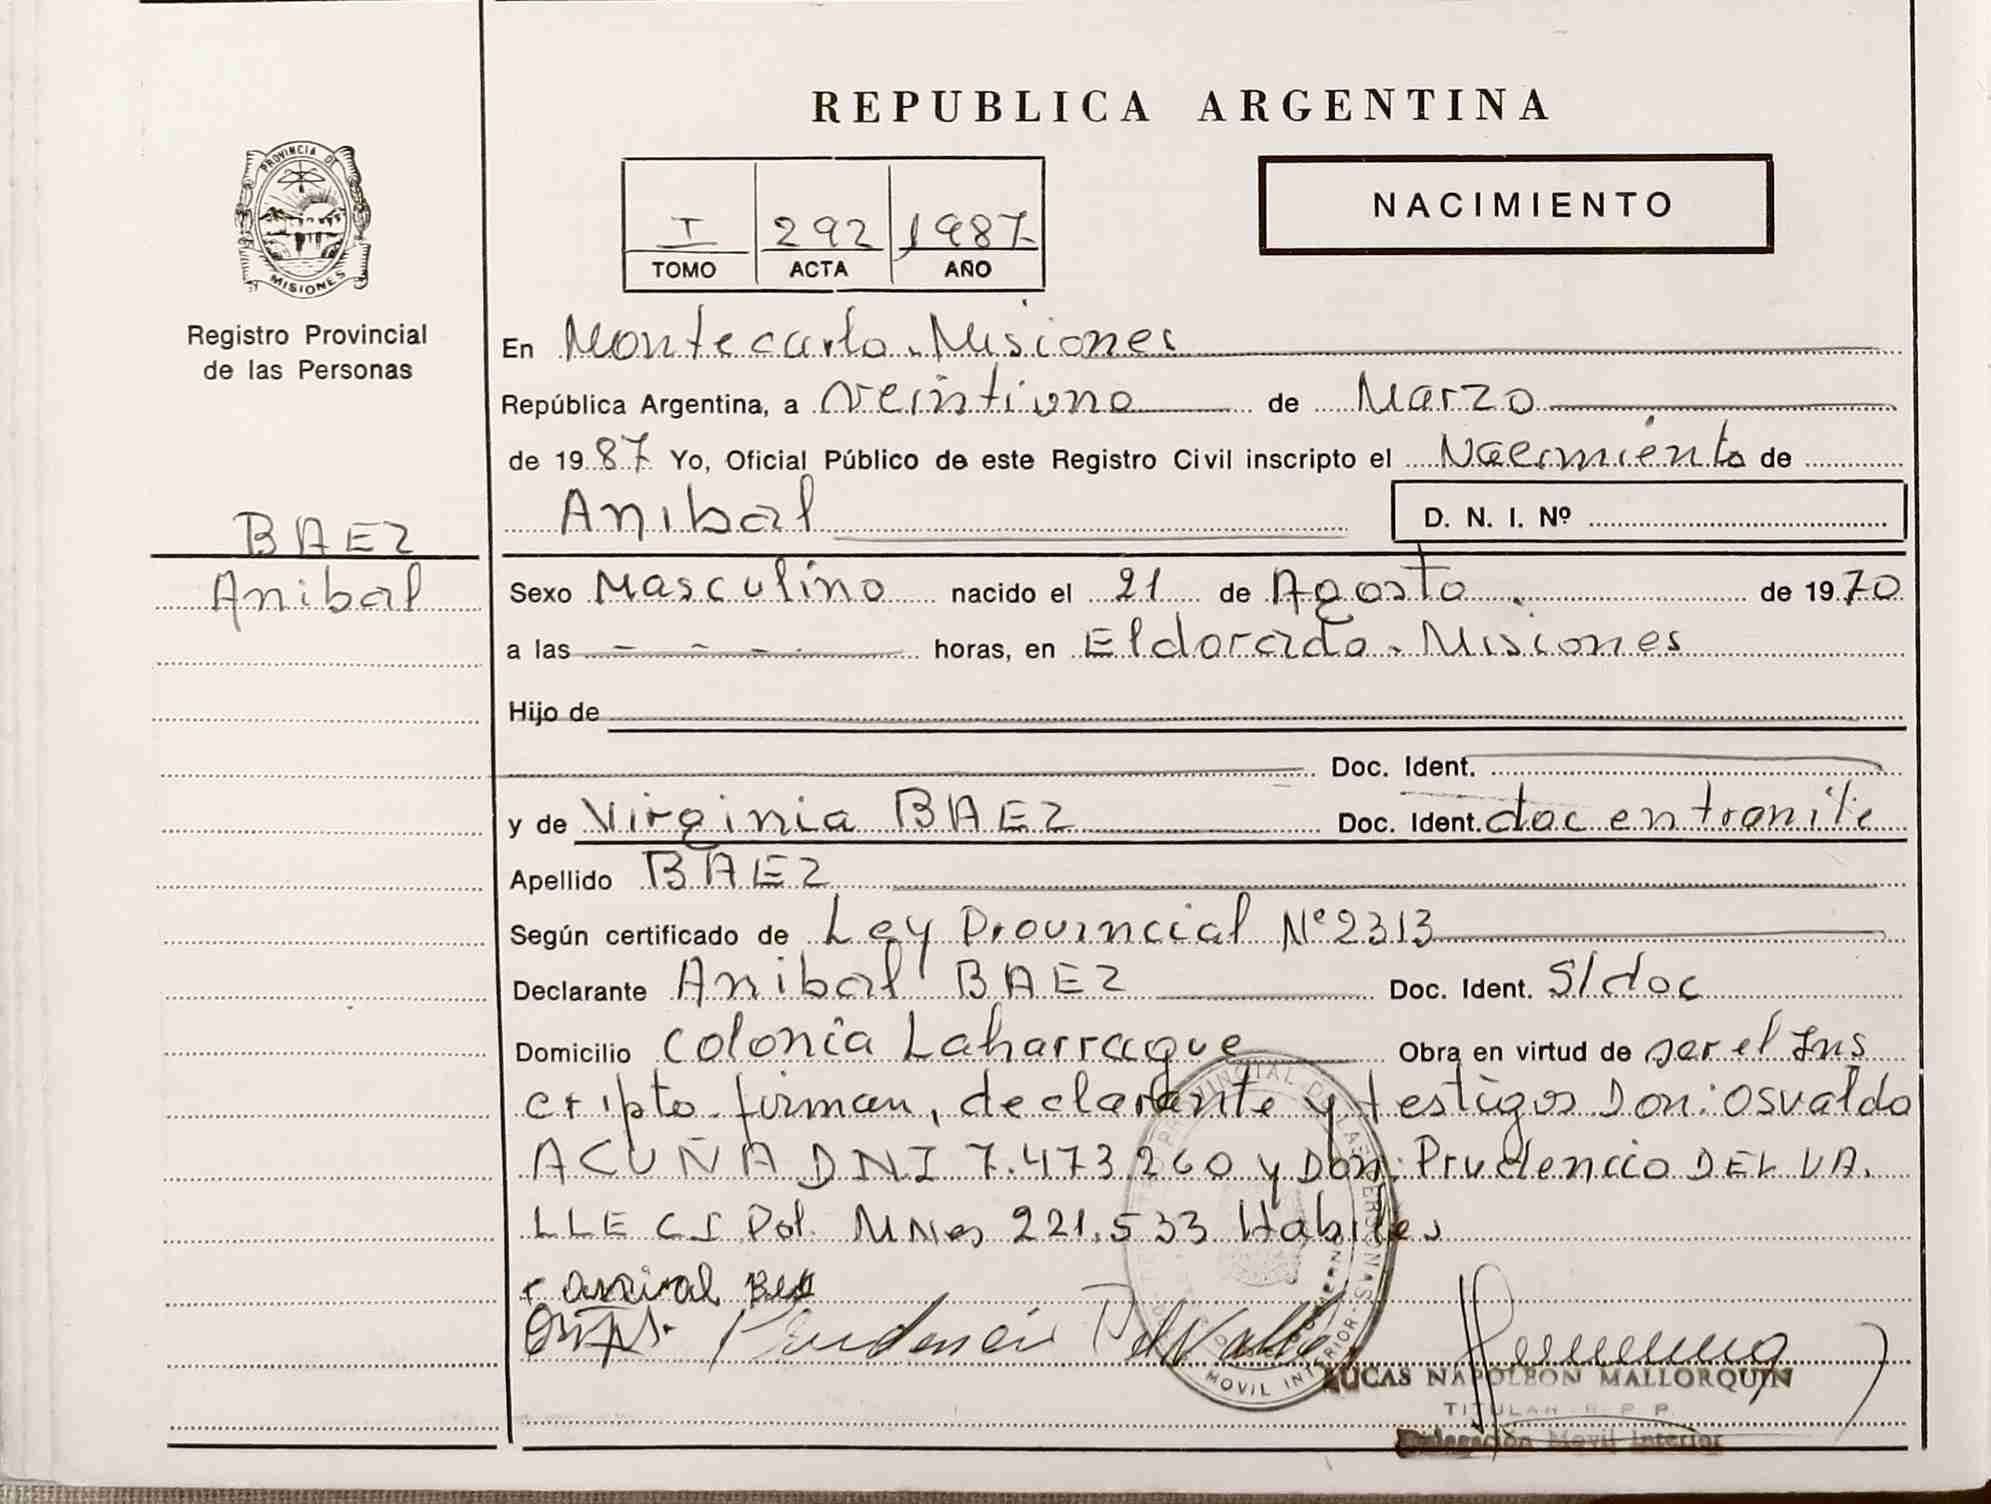 REPUBLICA ARGENTINA
PROVINCIA DE
MISIONES
Registro Provincial
de las Personas
I 292 1987
TOMO ACTA AÑO
NACIMIENTO
En Montecarlo. Misiones
República Argentina, a veintiuno de Marzo
de 1987 Yo, Oficial Público de este Registro Civil inscripto el Nacimiento de
Anibal D. N. I. Nº
BAEZ
Anibal
Sexo Masculino nacido el 21 de Agosto de 1970
a las - - - horas, en Eldorado. Misiones
Hijo de
Doc. Ident.
y de Virginia BAEZ Doc. Ident. doc en tramite
Apellido BAEZ
Según certificado de Ley Provincial Nº 2313
Declarante Anibal BAEZ Doc. Ident. S/doc
Domicilio Colonia Laharrague Obra en virtud de ser el Ins
cripto. firman, declarante y testigos Don: Osvaldo
ACUÑA DNI 7.473.260 y Don: Prudencio DEL VA.
LLE CI Pol. MNes 221.533 Habiles
Prudencio Del Valle
MOVIL INTERIOR
LUCAS NAPOLEON MALLORQUIN
TITULAR R. P. P.
Delegación Movil Interior